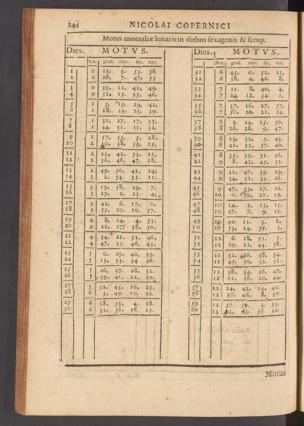 244 NICOLAI COPERNICI
Motus anomaliæ lunaris in diebus sexagenis & scrup.
Dies. MOTVS. Dies. MOTVS.
sex. grad. min. sec. ter. sex. grad. min. sec. ter.
1 0 13. 3. 53. 56. 31 6 45. 0. 52. 11.
2 0 26. 7. 47. 53 32 6 58. 4. 46. 8.
3 0 39. 11. 41. 49. 33 7 11. 8. 40. 4.
4 0 52. 15. 35. 46. 34 7 24. 12. 34. 1.
5 1 5. 19. 29. 42. 35 7 37. 16. 27. 57.
6 1 18. 23. 23. 39. 36 7 50. 20. 21. 54.
7 1 31. 27. 17. 35. 37 8 3. 24. 15. 50.
8 1 44. 31. 11. 32. 38 8 16. 28. 9. 47.
9 1 57. 35. 5. 28. 39 8 29. 32. 3. 43.
10 2 10. 38. 59. 25. 40 8 42. 35. 57. 40.
11 2 23. 42. 53. 21. 41 8 55. 39. 51. 36.
12 2 36. 46. 47. 18. 42 9 8. 43. 45. 33.
13 2 49. 50. 41. 14. 43 9 21. 47. 39. 29.
14 3 2. 54. 35. 11. 44 9 34. 51. 33. 26.
15 3 15. 58. 29. 7. 45 9 47. 55. 27. 22.
16 3 29. 2. 23. 4. 46 10 0. 59. 21. 19.
17 3 42. 6. 17. 0. 47 10 14. 3. 15. 15.
18 3 55. 10. 10. 57. 48 10 27. 7. 9. 12.
19 4 8. 14. 4. 53. 49 10 40. 11. 3. 8.
20 4 21. 17. 58. 50. 50 10 53. 14. 57. 5.
21 4 34. 21. 52. 46. 51 11 6. 18. 51. 1.
22 4 47. 25. 46. 43. 52 11 19. 22. 44. 58.
23 5 0. 29. 40. 39. 53 11 32. 26. 38. 54.
24 5 13. 33. 34. 36. 54 11 45. 30. 32. 51.
25 5 26. 37. 28. 32. 55 11 58. 34. 26. 47.
26 5 39. 41. 22. 29. 56 12 11. 38. 20. 44.
27 5 52. 45. 16. 25. 57 12 24. 42. 14. 40.
28 6 5. 49. 10. 22. 58 12 37. 46. 8. 37.
29 6 18. 53. 4. 18. 59 12 50. 50. 2. 33.
30 6 31. 56. 58. 15. 60 13 3. 53. 56.
Motus